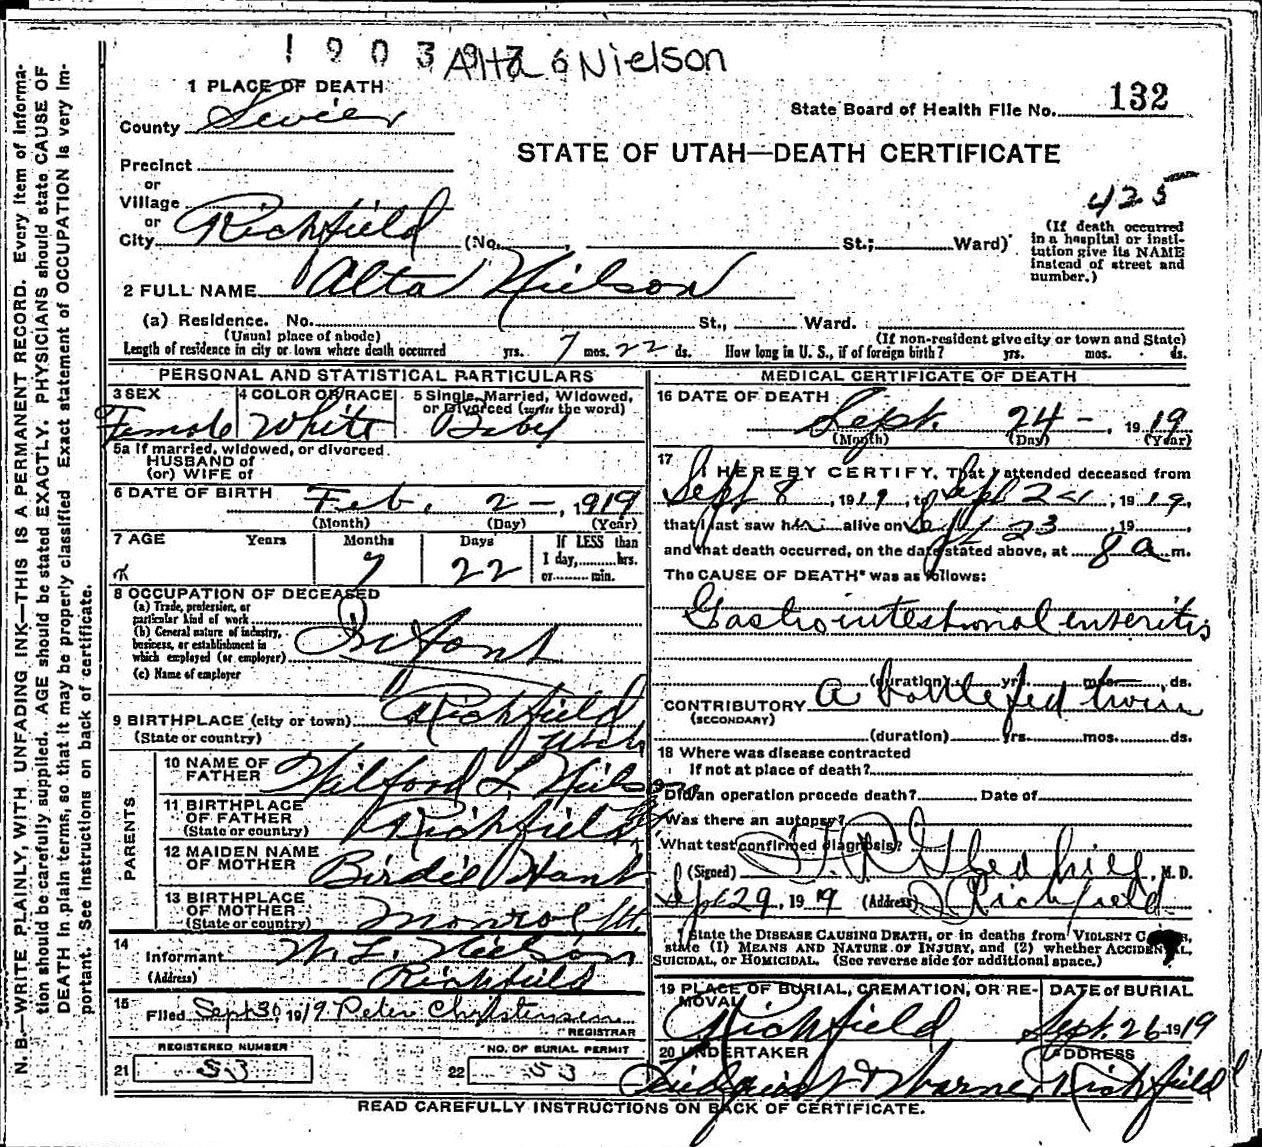 1903 Alta Nielson
1 PLACE OF DEATH
County Sevier
State Board of Health File No. 132
STATE OF UTAH—DEATH CERTIFICATE
Precinct
or
Village
or
City Richfield (No. , St.; Ward)
425
(If death occurred
in a hospital or insti-
tution give its NAME
instead of street and
number.)
2 FULL NAME Alta Nielson
(a) Residence. No. St., Ward.
(Usual place of abode) (If non-resident give city or town and State)
Length of residence in city or town where death occurred yrs. 7 mos. 22 ds. How long in U. S., if of foreign birth? yrs. mos. ds.
PERSONAL AND STATISTICAL PARTICULARS
3 SEX Female
4 COLOR OR RACE White
5 Single, Married, Widowed,
or Divorced (write the word)
Baby
5a If married, widowed, or divorced
HUSBAND of
(or) WIFE of
6 DATE OF BIRTH Feb. 2 -, 1919
(Month) (Day) (Year)
7 AGE Years Months Days If LESS than
1 day, hrs.
or min.
7 22
8 OCCUPATION OF DECEASED
(a) Trade, profession, or
particular kind of work
(b) General nature of industry,
business, or establishment in
which employed (or employer)
Infant
(c) Name of employer
9 BIRTHPLACE (city or town) Richfield
(State or country) Utah
PARENTS
10 NAME OF
FATHER Wilford L Nielson
11 BIRTHPLACE
OF FATHER
(State or country) Richfield
12 MAIDEN NAME
OF MOTHER Birdie Hunt
13 BIRTHPLACE
OF MOTHER
(State or country) Monroe Ut
14
Informant W L. Nielson
(Address) Richfield
15
Filed Sept 30, 1919 Peter Christensen
REGISTRAR
REGISTERED NUMBER
21 53
NO. OF BURIAL PERMIT
22 53
MEDICAL CERTIFICATE OF DEATH
16 DATE OF DEATH
Sept. 24 -, 1919
(Month) (Day) (Year)
17
I HEREBY CERTIFY, That I attended deceased from
Sept 8, 1919, to Sept 24, 1919,
that I last saw her alive on Sept 23, 19
and that death occurred, on the date stated above, at 8 a m.
The CAUSE OF DEATH* was as follows:
Gastrointestional enteritis
(duration) yrs. mos. ds.
CONTRIBUTORY a bottle fed twin
(SECONDARY)
(duration) yrs. mos. ds.
18 Where was disease contracted
if not at place of death?
Did an operation precede death? Date of
Was there an autopsy?
What test confirmed diagnosis?
(Signed) Gledhill, M. D.
Sept 29, 1919 (Address) Richfield
*State the DISEASE CAUSING DEATH, or in deaths from VIOLENT
state (1) MEANS AND NATURE OF INJURY, and (2) whether ACCIDENTAL,
SUICIDAL, or HOMICIDAL. (See reverse side for additional space.)
19 PLACE OF BURIAL, CREMATION, OR RE-
MOVAL
Richfield
DATE of BURIAL
Sept. 26 1919
20 UNDERTAKER
Warner
ADDRESS
Richfield
READ CAREFULLY INSTRUCTIONS ON BACK OF CERTIFICATE.
N. B.—WRITE PLAINLY, WITH UNFADING INK—THIS IS A PERMANENT RECORD. Every item of informa-
tion should be carefully supplied. AGE should be stated EXACTLY. PHYSICIANS should state CAUSE OF
DEATH in plain terms, so that it may be properly classified. Exact statement of OCCUPATION is very im-
portant. See instructions on back of certificate.